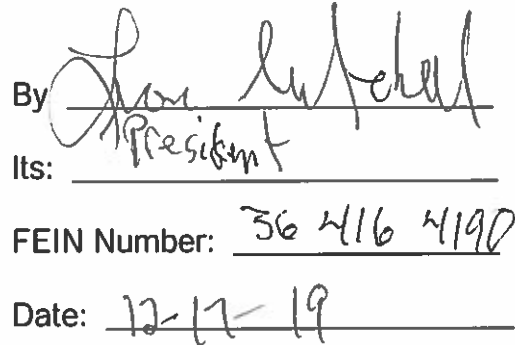 By
President
Its:
FEIN Number: 36 416 4190
Date: 12-17-19